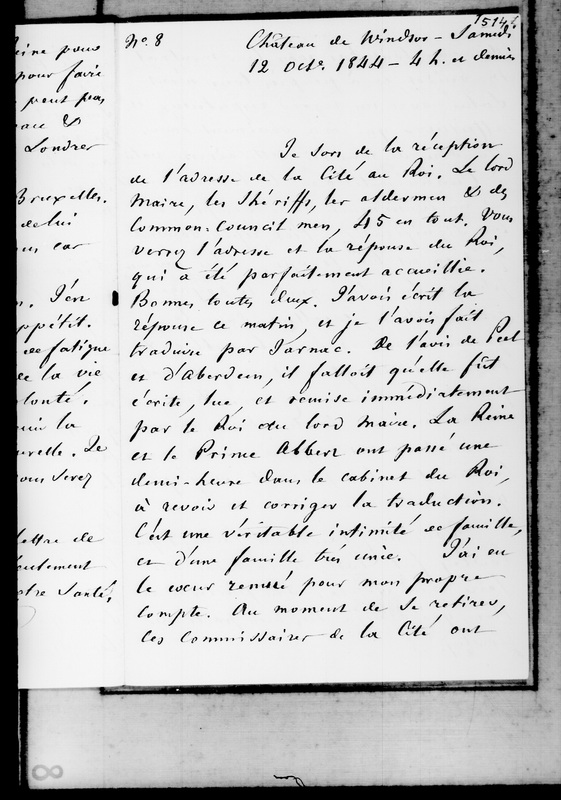 15144
eine pour
pour faire
peut pas
&
Londres
Bruxelles.
de lui
car
n. J'en
ppétit.
de fatigue
de la vie
lonté.
la
urelle. Je
ous serez
lettre de
eulement
otre santé,
N°. 8
Château de Windsor - Samedi
12 Octe. 1844 - 4 h. et demie
Je sors de la réception
de l'adresse de la Cité au Roi. Le lord
Maire, les Shériffs, les aldermen & des
Common-council men, 45 en tout. Vous
verrez l'adresse et la réponse du Roi,
qui a été parfaitement accueillie.
Bonnes toutes deux. J'avois écrit la
réponse ce matin, et je l'avois fait
traduire par Jarnac. De l'avis de Peel
et d'Aberdeen, il falloit qu'elle fût
écrite, lue, et remise immédiatement
par le Roi au lord Maire. La Reine
et le Prince Albert ont passé une
demi-heure dans le cabinet du Roi,
à revoir et corriger la traduction.
C'est une véritable intimité de famille,
et d'une famille très unie. J'ai eu
le cœur remué pour mon propre
compte. Au moment de se retirer,
les commissaires de la Cité ont
8